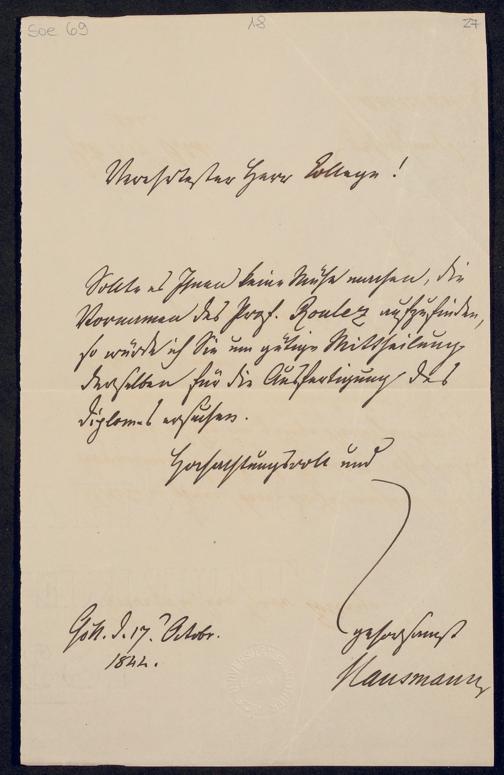 Soe 69
18
27
Verehrtester Herr College!
Sollte es Ihnen keine Mühe machen, die
Vornamen des Prof. Roulez aufzufinden,
so würde ich Sie um gütige Mittheilung
derselben für die Ausfertigung des
Diplomes ersuchen.
Hochachtungsvoll und
gehorsamst
Hausmann
Gött. d. 17. Octobr.
1844.